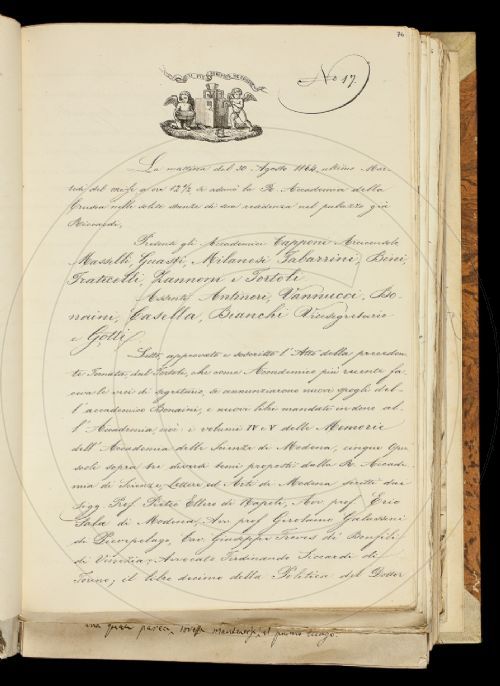 76
No 17.
La mattina del 30 Agosto 1864 ultimo Mar-
tedì del mese a ore 12½ si adunò la R. Accademia della
Crusca nelle solite stanze di sua residenza nel palazzo già
Riccardi.
Presenti gli Accademici Capponi Arciconsolo,
Masselli, Guasti, Milanesi, Tabarrini, Bini,
Fraticelli, Zannoni e Tortoli
Assenti Antinori, Vannucci, Bo-
naini, Casella, Bianchi Vicesegretario
e Gotti
Letto, approvato e sottoscritto l'Atto della preceden-
te Tornata, dal Tortoli, che come Accademico più recente fa-
ceva le veci di segretario, si annunziarono nuovi spogli del-
l'accademico Bonaini, e nuovi libri mandati in dono al-
l'Accademia, cioè i volumi IV e V delle Memorie
dell'Accademia delle Scienze di Modena, cinque Opu-
scoli sopra tre diversi temi proposti dalla R. Accade-
mia di Scienze, Lettere ed Arti di Modena scritti dai
Sigg. Prof. Pietro Ellero di Napoli, Avv. prof. Erio
Sala di Modena, Avv. prof. Girolamo Galassini
di Pievepelago, Cav. Giuseppe Treves de' Bonfili
di Venezia, Avvocato Ferdinando Siccardi di
Torino; il libro decimo della Politica del Dottor
una parica, mandursi, il primo luogo.